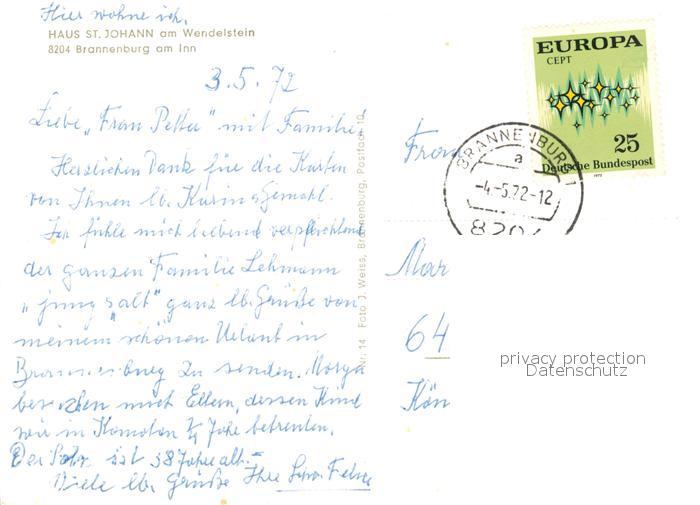 Hier wohne ich.
HAUS ST. JOHANN am Wendelstein
8204 Brannenburg am Inn
3.5.72
Liebe „Frau Petta" mit Familie!
Herzlichen Dank für die Karten
von Ihnen lb. Gemahl.
fühle mich liebend
der ganzen Familie Lehmann
„jung alt" ganz lb. Grüße von
meinem schönen Urlaub in
zu senden. Morgen
mich Eltern, dessen Kind
wir in Jahr betreuten.
Der ist 38 Jahre alt.-
Viele lb. Grüße Ihre
Nr. 14 Foto: J. Weiss, Brannenburg, Postfach 10
EUROPA
CEPT
25
Deutsche Bundespost
1972
BRANNENBURG
a
-4.-5.72-12
8204
Frau
Mar
64
Kön
privacy protection
Datenschutz